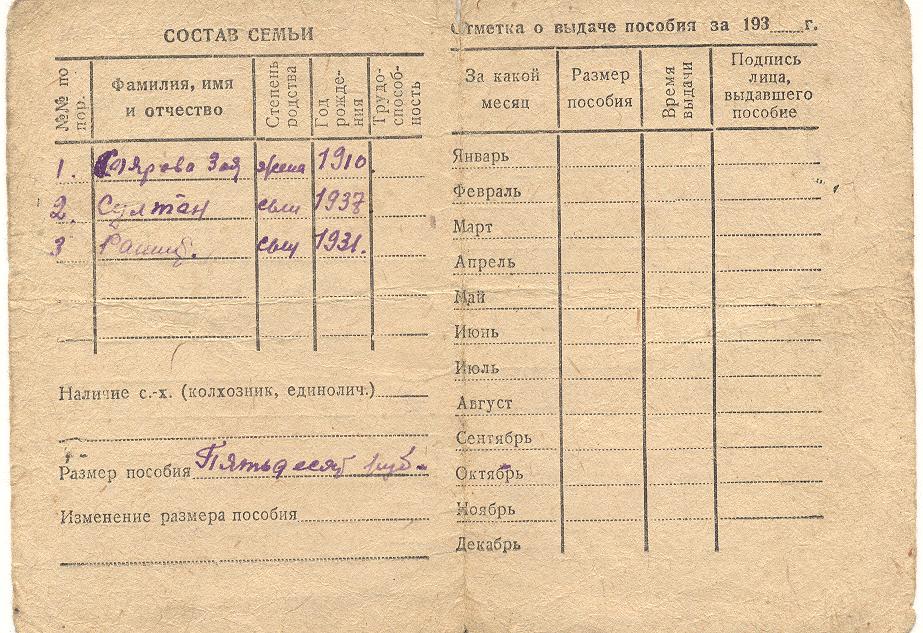 СОСТАВ СЕМЬИ
№№ по пор.
Фамилия, имя и отчество
Степень родства
Год рождения
Трудоспособность
1. Зоя жена 1910.
2. Султан сын 1937
3 сын 1931.
Наличие с.-х. (колхозник, единолич.)
Размер пособия Пятьдесят руб.
Изменение размера пособия
Отметка о выдаче пособия за 193 г.
За какой месяц
Размер пособия
Время выдачи
Подпись лица, выдавшего пособие
Январь
Февраль
Март
Апрель
Май
Июнь
Июль
Август
Сентябрь
Октябрь
Ноябрь
Декабрь